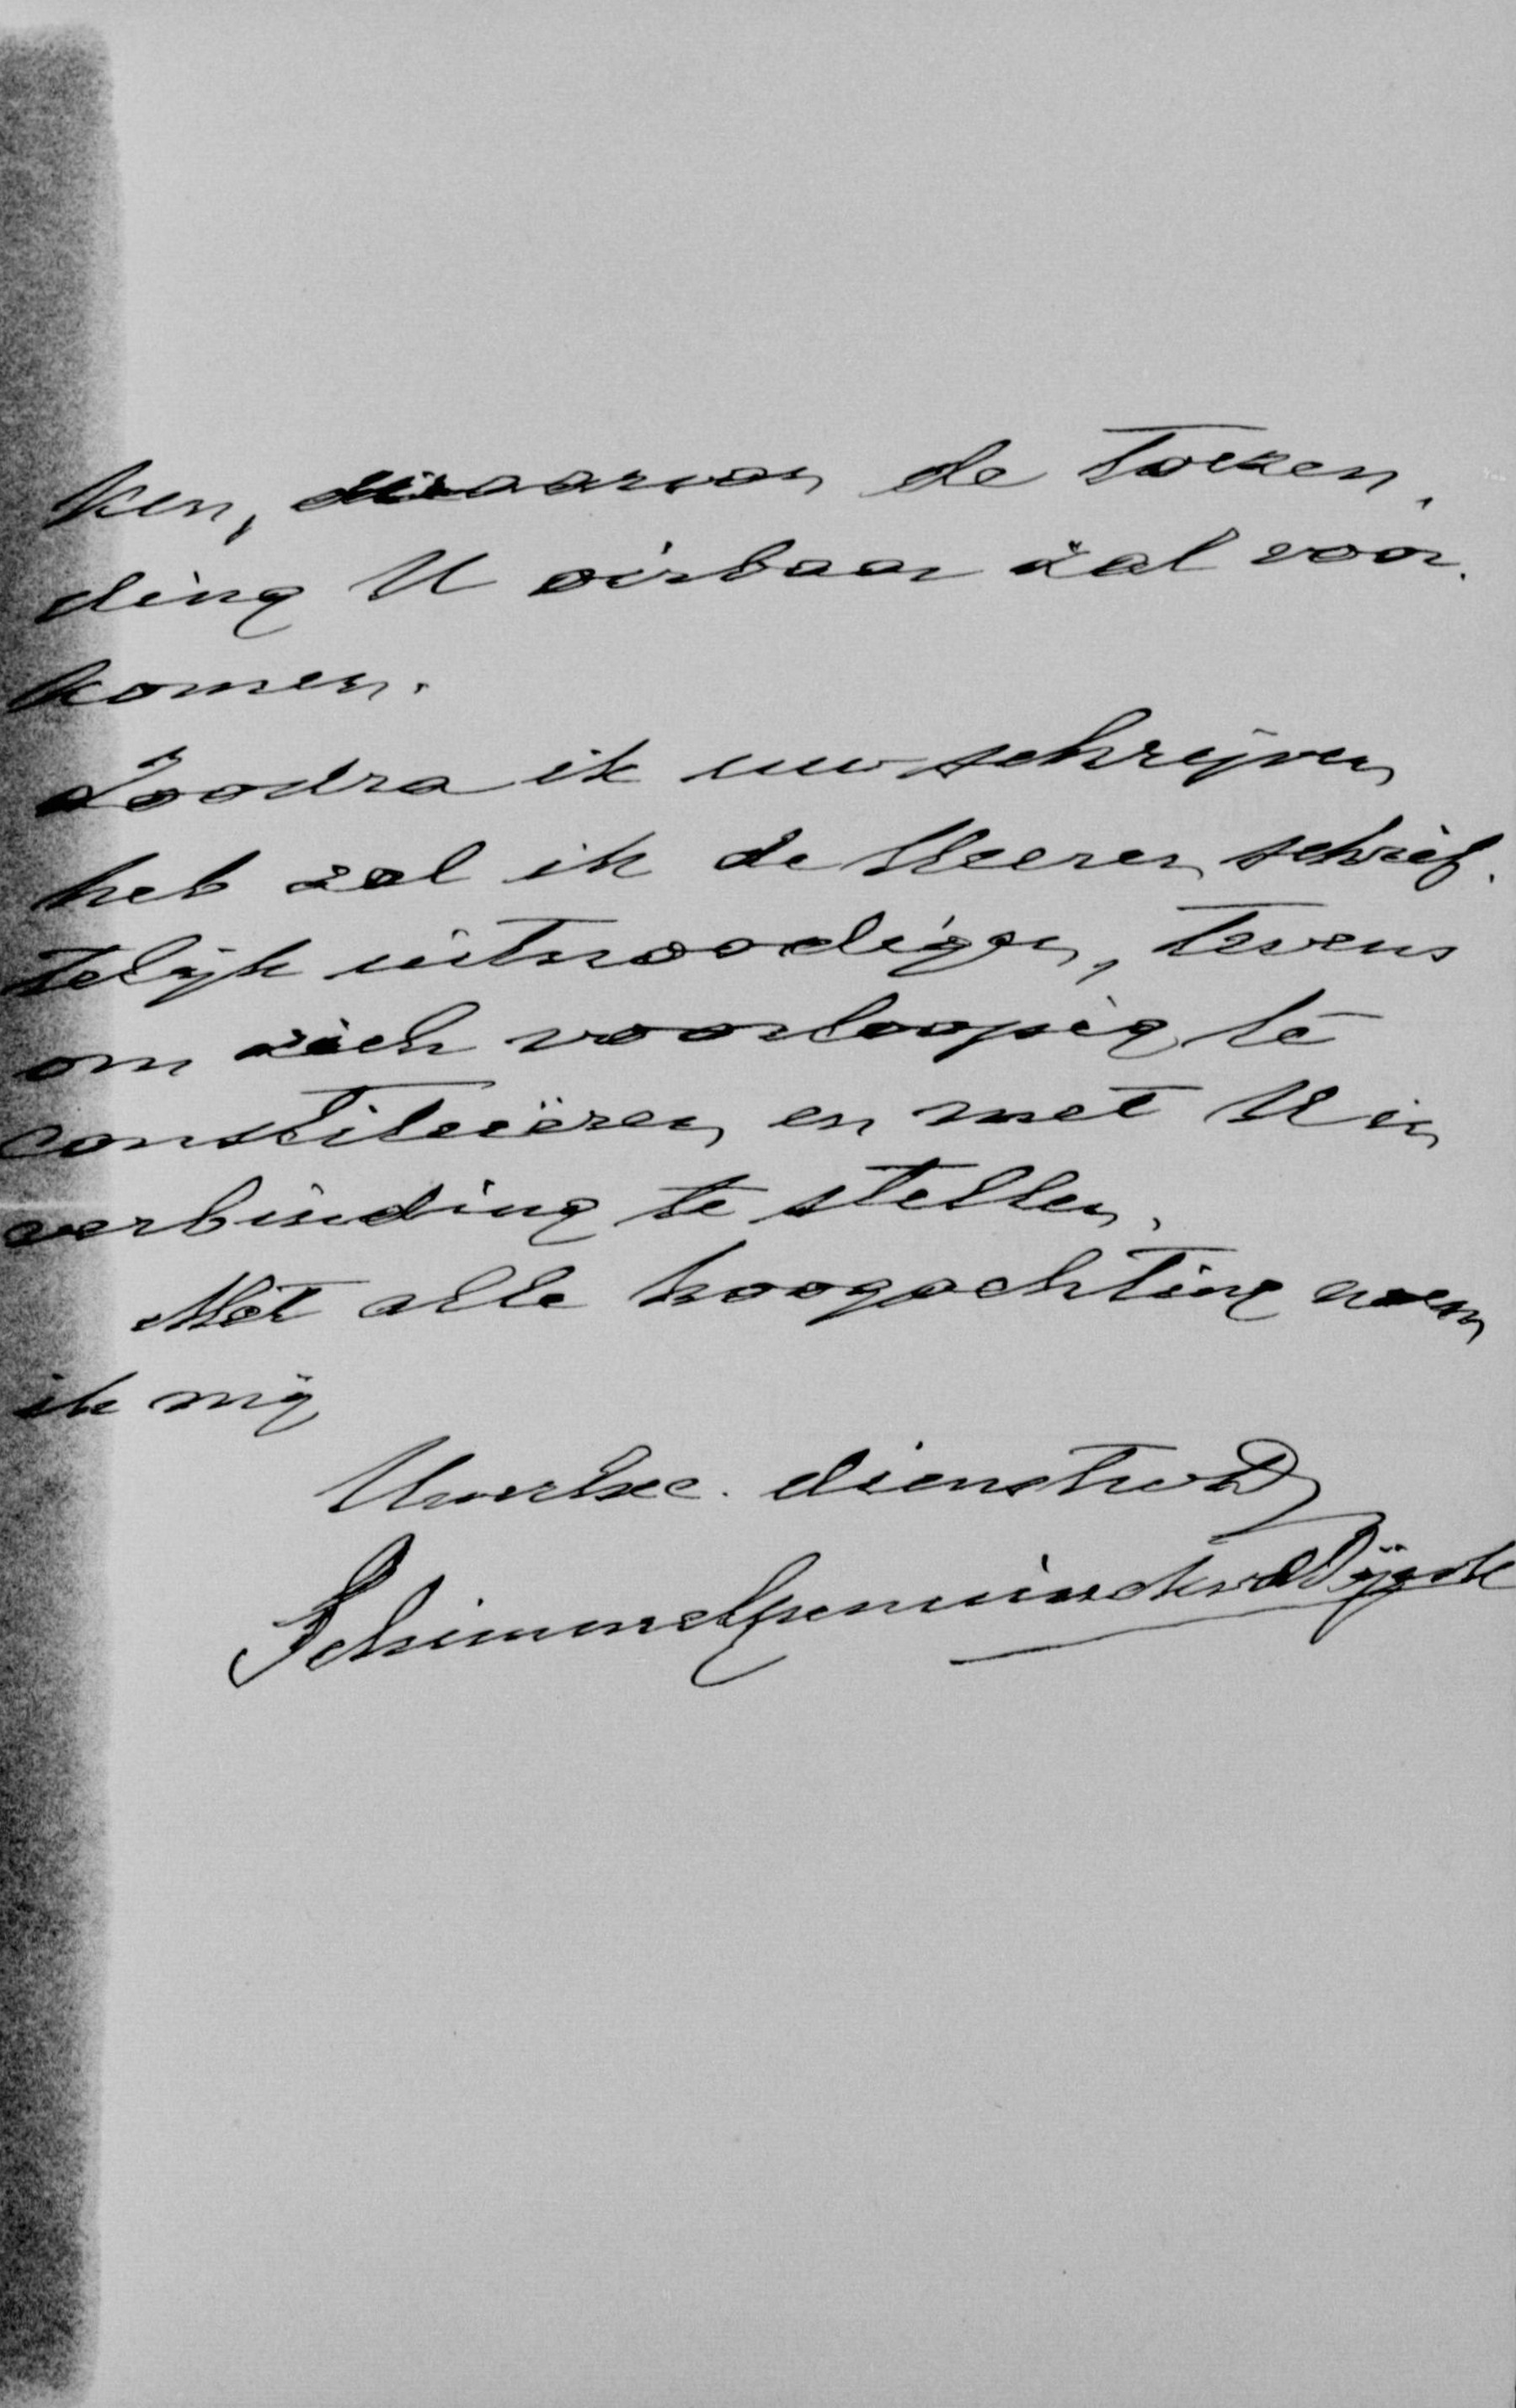 ken, waarvan de toezen-
ding U oirbaar zal voor-
komen.
Zoodra ik uw schrijven
heb zal ik de Heeren schrif-
telijk uitnoodigen, tevens
om zich voorloopig te
constitueëren en met U in
verbinding te stellen.
Met alle hoogachting noem
ik mij
UwEd. dienstw D
Schimmelpenninck vd Oye